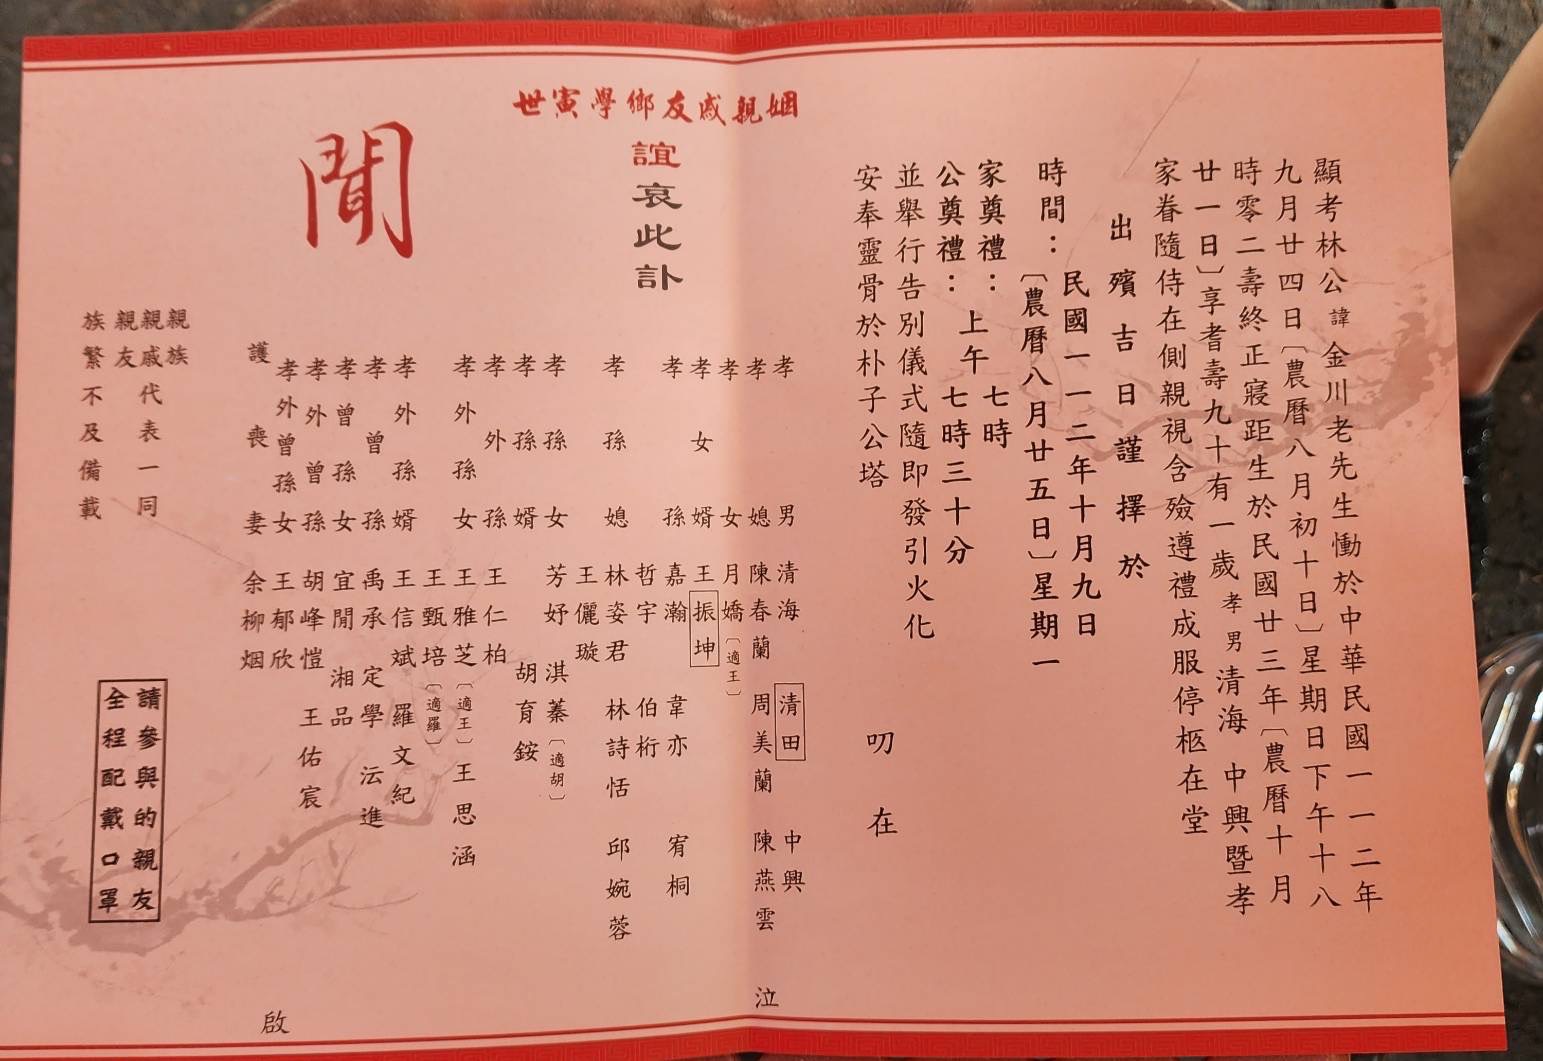 顯考林公諱金川老先生慟於中華民國一一二年
九月廿四日〔農曆八月初十日〕星期日下午十八
時零二壽終正寢距生於民國廿三年〔農曆十月
廿一日〕享耆壽九十有一歲孝男清海 中興暨孝
家眷隨侍在側親視含殮遵禮成服停柩在堂
出殯吉日謹擇於
時間：民國一一二年十月九日
〔農曆八月廿五日〕星期一
家奠禮：上午七時
公奠禮：上午七時三十分
並舉行告別儀式隨即發引火化
安奉靈骨於朴子公塔
叨在
姻親戚友鄉學寅世
誼哀此訃
聞
孝男 清海 清田 中興
孝媳 陳春蘭 周美蘭 陳燕雲
孝女 月嬌〔適王〕
孝女婿 王振坤
孝孫 嘉瀚 韋亦 宥桐
哲宇 伯桁
孝孫媳 林姿君 林詩恬 邱婉蓉
王儷璇
孝孫女 芳妤 淇蓁〔適胡〕
孝孫婿 胡育銨
孝外孫 王仁柏
孝外孫女 王雅芝〔適王〕 王思涵
王甄培〔適羅〕
孝外孫婿 王信斌 羅文紀
孝曾孫 禹承 定學 沄進
孝曾孫女 宜閒 湘品
孝外曾孫 胡峰愷 王佑宸
孝外曾孫女 王郁欣
護喪妻 余柳烟
泣
啟
親族
親戚代表一同
親友
族繁不及備載
請參與的親友
全程配戴口罩